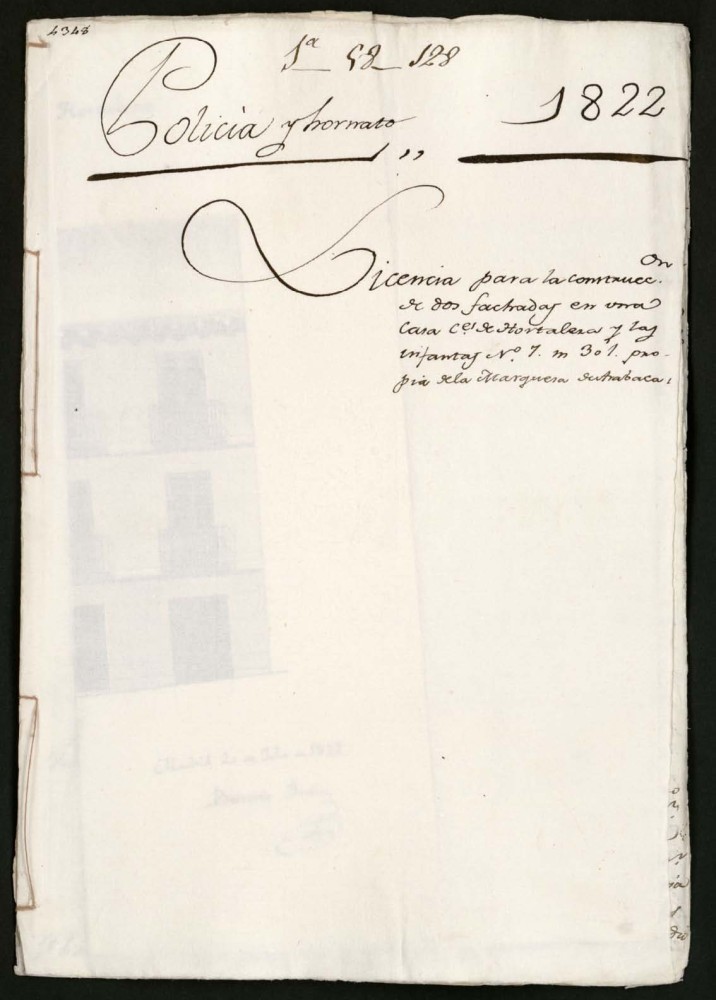 4348
1ª 58 128
Policia y hornato
1822
Licencia para la construcc.on
de dos fachadas en una
Casa C.es de Hortaleza y las
infantas N.º 7. m 301. pro-
pia de la Marquesa de Arabaca